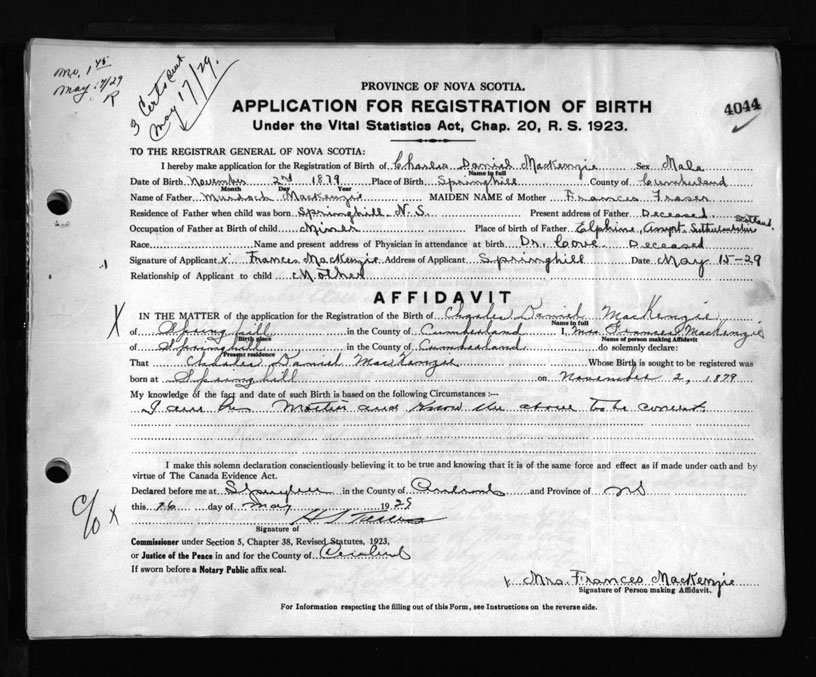 mo. 1 45
May 17/29
R
3 Certs sent
May 17/29.
4044
PROVINCE OF NOVA SCOTIA.
APPLICATION FOR REGISTRATION OF BIRTH
Under the Vital Statistics Act, Chap. 20, R. S. 1923.
TO THE REGISTRAR GENERAL OF NOVA SCOTIA:
I hereby make application for the Registration of Birth of Charles Daniel MacKenzie Sex Male
Name in full
Date of Birth November 2nd 1879 Place of Birth Springhill County of Cumberland
Month Day Year
Name of Father Murdoch MacKenzie MAIDEN NAME of Mother Frances Fraser
Residence of Father when child was born Springhill N.S. Present address of Father Deceased
Occupation of Father at Birth of child Miner Place of birth of Father Elphine, Scotland
Race Name and present address of Physician in attendance at birth Dr. Cove Deceased
Signature of Applicant x Frances MacKenzie Address of Applicant Springhill Date May 15-29
Relationship of Applicant to child Mother
AFFIDAVIT
X IN THE MATTER of the application for the Registration of the Birth of Charles Daniel MacKenzie
Name in full
of Springhill in the County of Cumberland I, Mrs Frances Mackenzie
Birth place Name of person making Affidavit
of Springhill in the County of Cumberland do solemnly declare:
Present residence
That Charles Daniel MacKenzie Whose Birth is sought to be registered was
born at Springhill on November 2, 1879
My knowledge of the fact and date of such Birth is based on the following Circumstances:—
I am his Mother and know the above to be correct
I make this solemn declaration conscientiously believing it to be true and knowing that it is of the same force and effect as if made under oath and by
virtue of The Canada Evidence Act.
Declared before me at Springhill in the County of Cumberland and Province of NS
c/o x this 16 day of May 1929
Signature of
Commissioner under Section 5, Chapter 38, Revised Statutes, 1923,
or Justice of the Peace in and for the County of Cumberland
If sworn before a Notary Public affix seal.
x Mrs. Frances MacKenzie
Signature of Person making Affidavit.
For Information respecting the filling out of this Form, see Instructions on the reverse side.